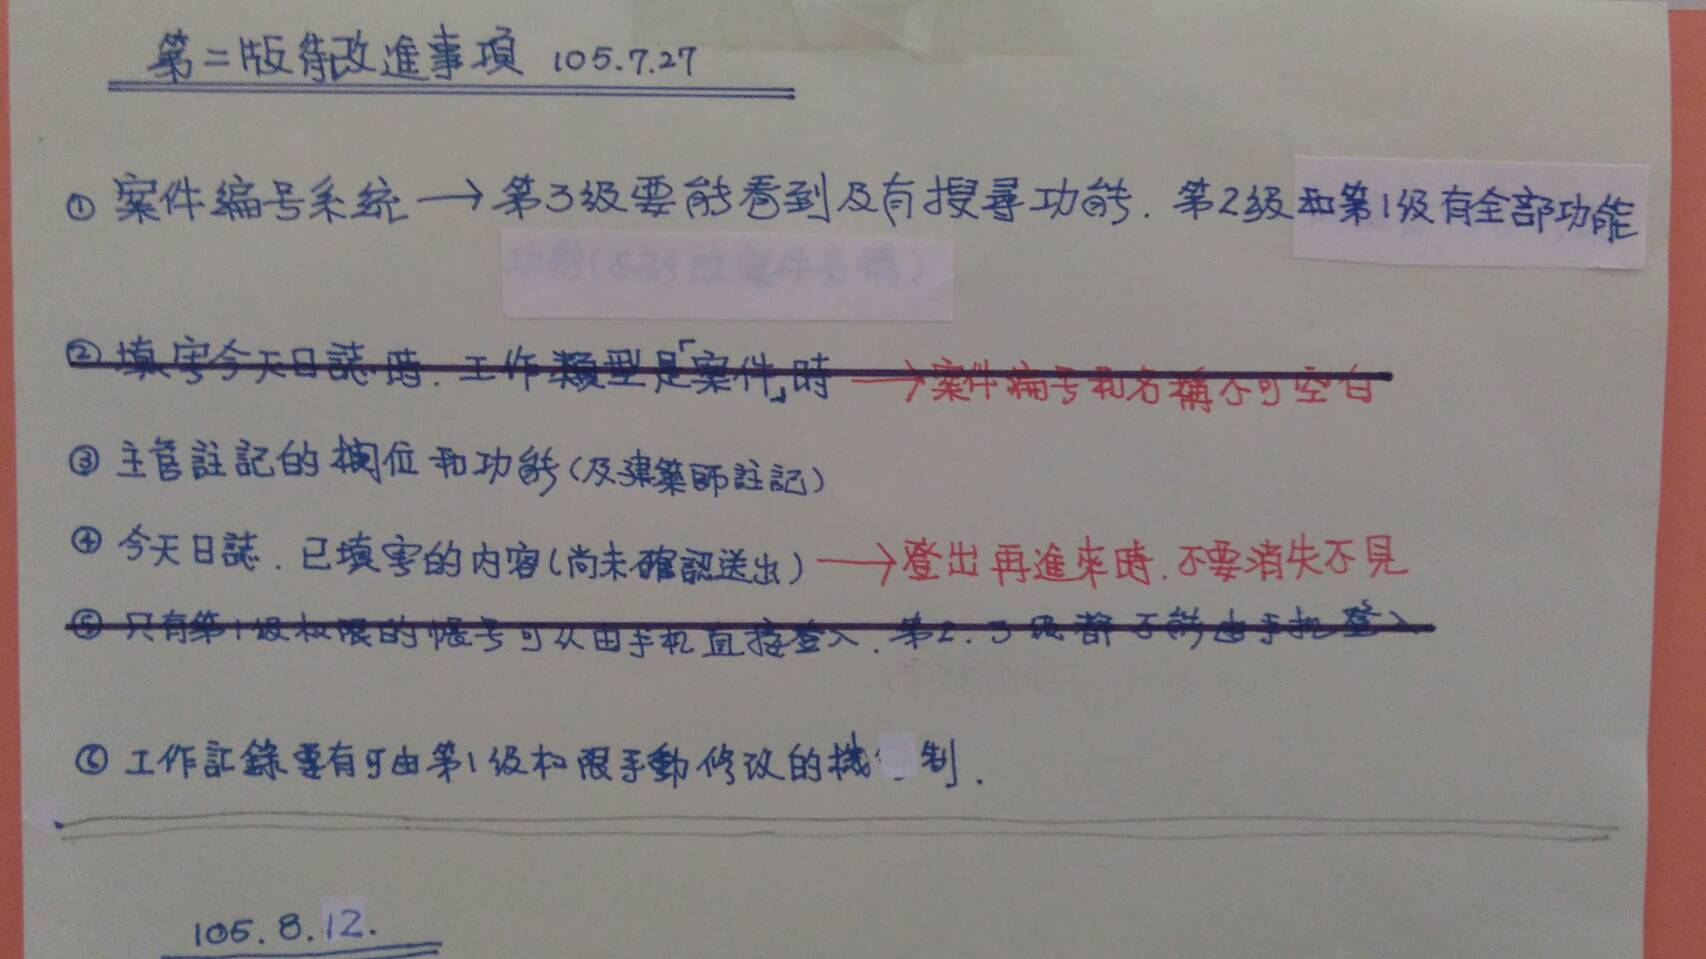 第二版待改進事項 105.7.27
① 案件編号系統 → 第3級要能看到及有搜尋功能. 第2級和第1級有全部功能
功能(不能改案件名稱)
② 填寫今天日誌時. 工作類型是「案件」時 → 案件編号和名稱不可空白
③ 主管註記的欄位和功能(及建築師註記)
④ 今天日誌. 已填寫的内容(尚未確認送出) → 登出再進來時. 不要消失不見
⑤ 只有第1級权限的帳号可以由手机直接登入. 第2.3級都不能由手机登入
⑥ 工作記錄要有可由第1級权限手動修改的機制.
105.8.12.